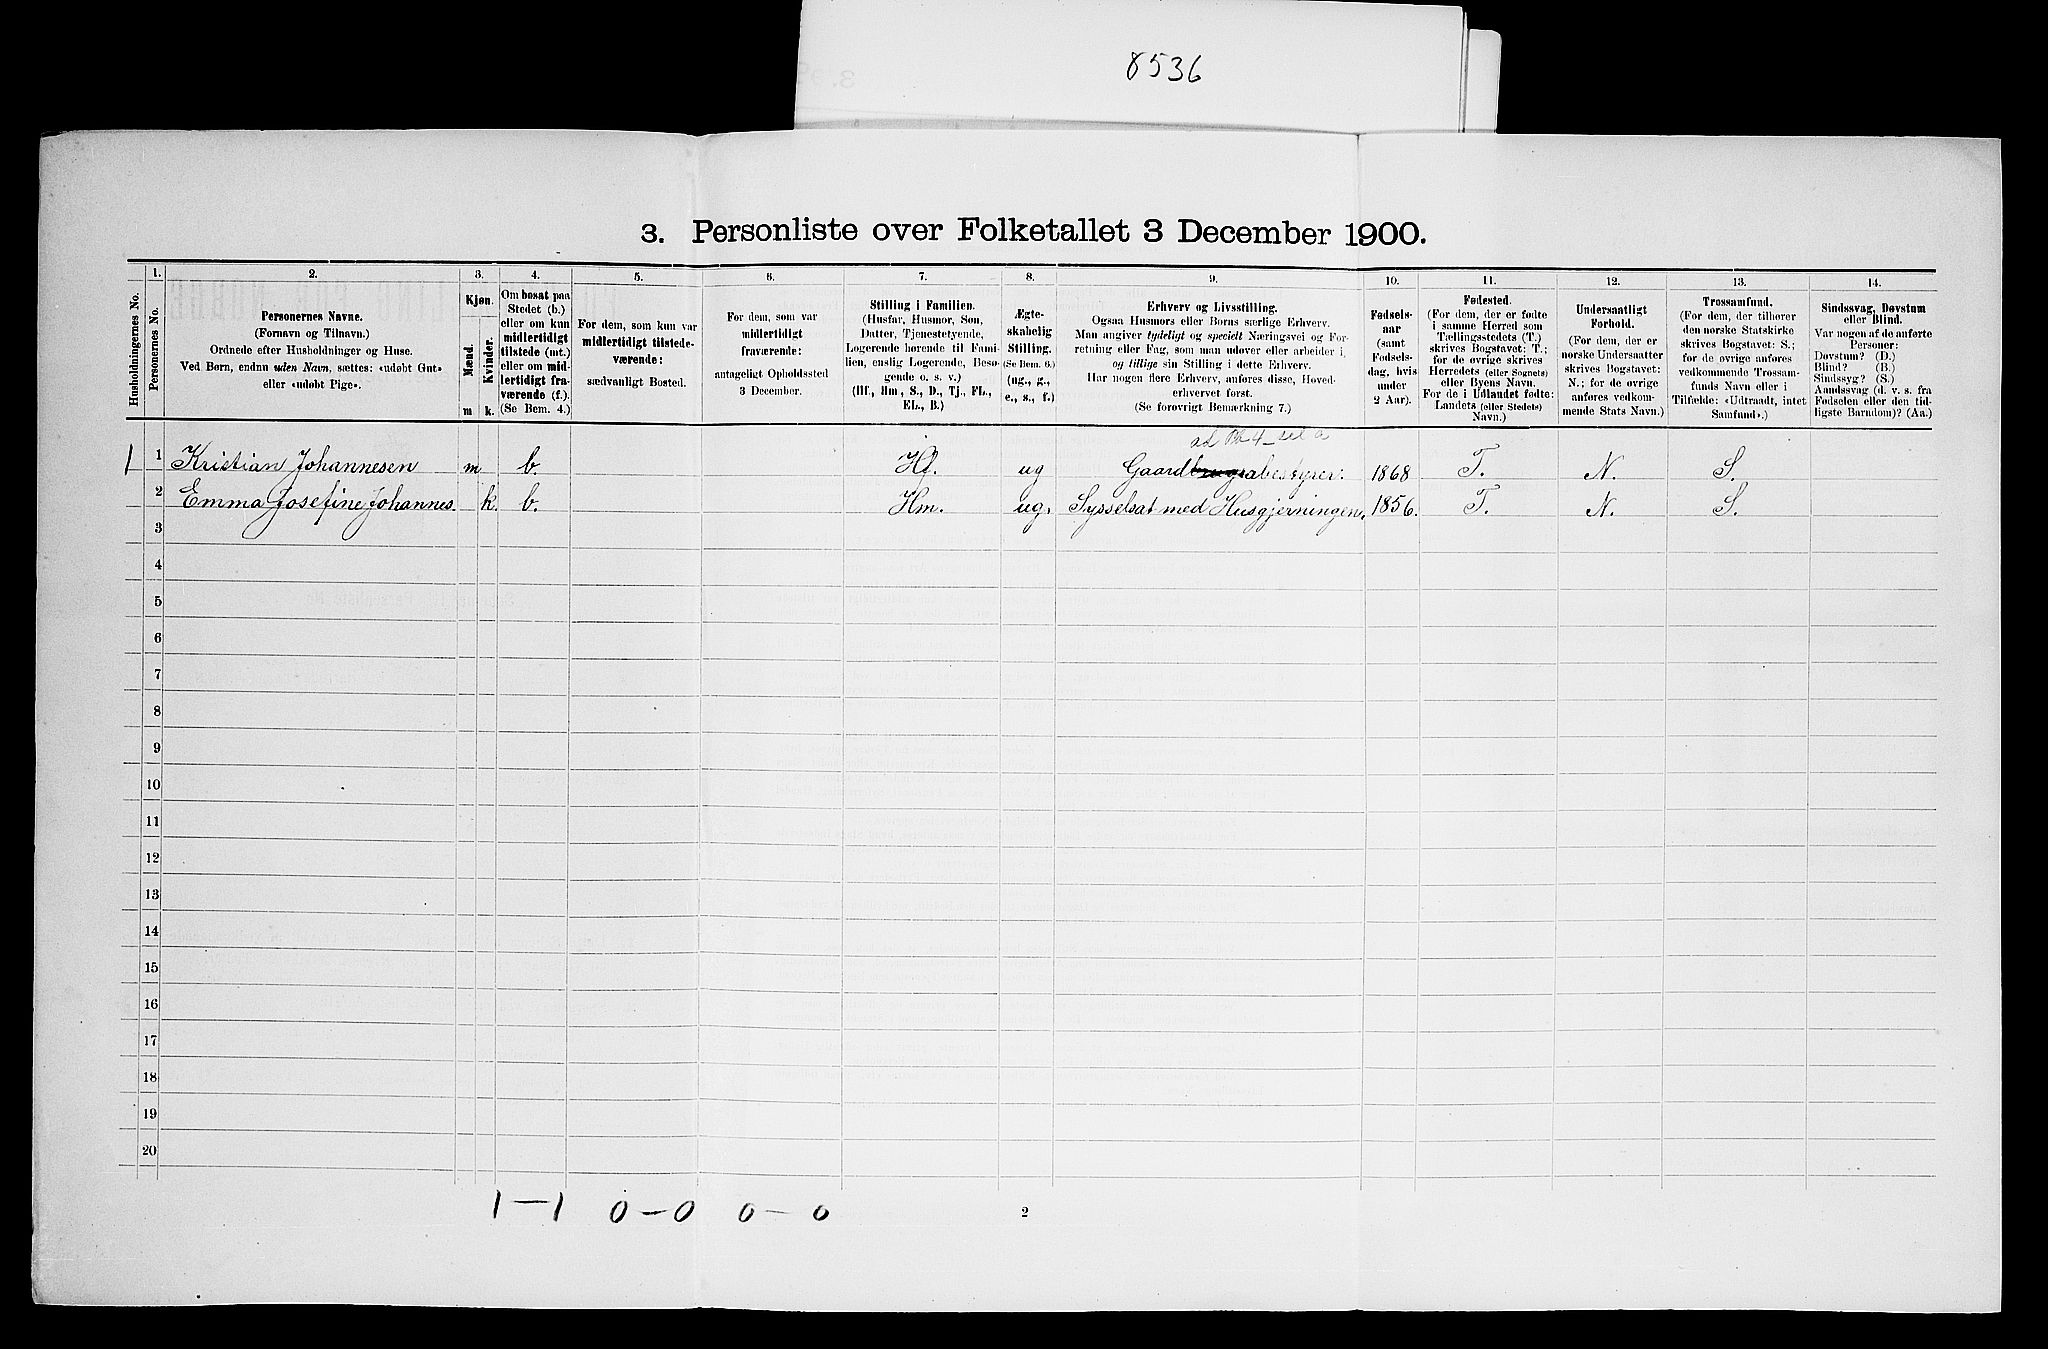 8536
3. Personliste over Folketallet 3 December 1900.
Husholdningernes No.
1.
Personernes No.
2.
Personernes Navne.
(Fornavn og Tilnavn.)
Ordnede efter Husholdninger og Huse.
Ved Børn, endnu uden Navn, sættes: «udøbt Gut»
eller «udøbt Pige».
3.
Kjøn.
Mænd.
Kvinder.
m
k.
4.
Om bosat paa
Stedet (b.)
eller om kun
midlertidigt
tilstede (mt.)
eller om mid-
lertidigt fra-
værende (f.).
(Se Bem. 4.)
5.
For dem, som kun var
midlertidigt tilstede-
værende:
sædvanligt Bosted.
6.
For dem, som var
midlertidigt
fraværende:
antageligt Opholdssted
3 December.
7.
Stilling i Familien.
(Husfar, Husmor, Søn,
Datter, Tjenestetyende,
Logerende hørende til Fami-
lien, enslig Logerende, Besø-
gende o. s. v.)
(Hf., Hm., S., D., Tj., FL.,
EL., B.)
8.
Ægte-
skabelig
Stilling.
(Se Bem. 6.)
(ug., g.,
e., s., f.)
9.
Erhverv og Livsstilling.
Ogsaa Husmors eller Børns særlige Erhverv.
Man angiver tydeligt og specielt Næringsvei og For-
retning eller Fag, som man udøver eller arbeider i,
og tillige sin Stilling i dette Erhverv.
Har nogen flere Erhverv, anføres disse, Hoved-
erhvervet først.
(Se forøvrigt Bemærkning 7.)
10.
Fødsels-
aar
(samt
Fødsels-
dag, hvis
under
2 Aar).
11.
Fødested.
(For dem, der er fødte
i samme Herred som
Tællingsstedets (T.)
skrives Bogstavet: T.;
for de øvrige skrives
Herredets (eller Sognets)
eller Byens Navn.
For de i Udlandet fødte:
Landets (eller Stedets)
Navn.)
12.
Undersaatligt
Forhold.
(For dem, der er
norske Undersaatter
skrives Bogstavet:
N.; for de øvrige
anføres vedkom-
mende Stats Navn.)
13.
Trossamfund.
(For dem, der tilhører
den norske Statskirke
skrives Bogstavet: S.;
for de øvrige anføres
vedkommende Trossam-
funds Navn eller i
Tilfælde: «Udtraadt, intet
Samfund».)
14.
Sindssvag, Døvstum
eller Blind.
Var nogen af de anførte
Personer:
Døvstum? (D.)
Blind? (B.)
Sindssyg? (S.)
Aandssvag (d. v. s. fra
Fødselen eller den tid-
ligste Barndom)? (Aa.)
1 1 Kristian Johannesen m b. Hf. ug Gaardbrugsabestyrer. 1868 T. N. S.
2 Emma Josefine Johannes. k. b. Hm. ug. Sysselsat med Husgjerningen. 1856. T. N. S.
3
4
5
6
7
8
9
10
11
12
13
14
15
16
17
18
19
20
1—1 0—0 0—0 2